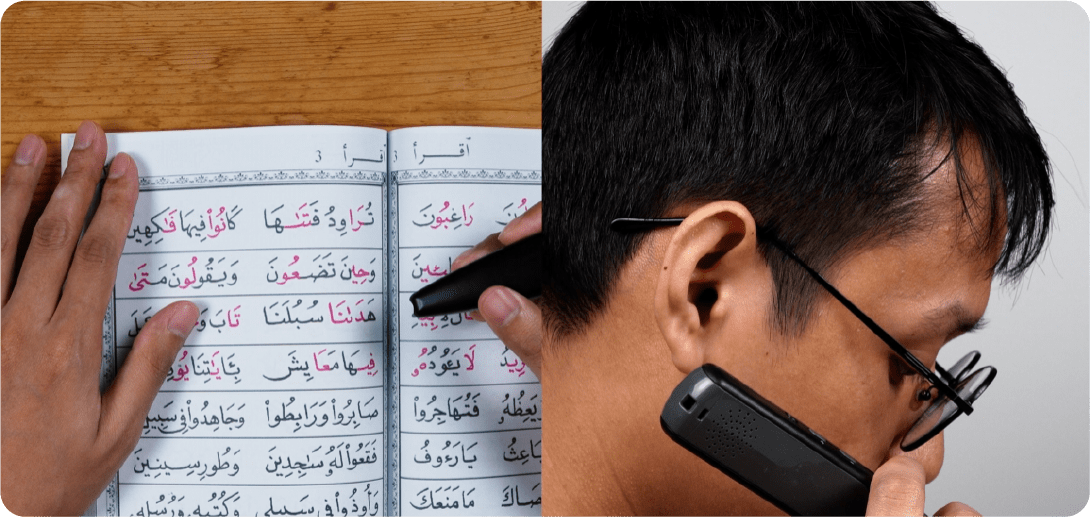 اقرأ 3
رَاغِبُونَ
تُرَاوِدُ فَتَىٰهَا كَانُوا۟ فِيهَا فَٰكِهِينَ
وَحِينَ تَضَعُونَ وَيَقُولُونَ مَتَىٰ
هَدَىٰنَا سُبُلَنَا تَابَ
لَا يَـُٔودُهُۥ
فِيهَا مَعَايِشَ بِـَٔايَٰتِنَا
يَعِظُهُۥ فَتُهَاجِرُوا۟
صَابِرُوا۟ وَرَابِطُوا۟ وَجَاهِدُوا۟ فِى
يَارَءُوفُ
فَقَعُوا۟ لَهُۥ سَٰجِدِينَ وَطُورِ سِينِينَ
مَا مَنَعَكَ
وَأُوذُوا۟ فِى سَبِيلِى وَكُتُبِهِۦ وَرُسُلِهِۦ